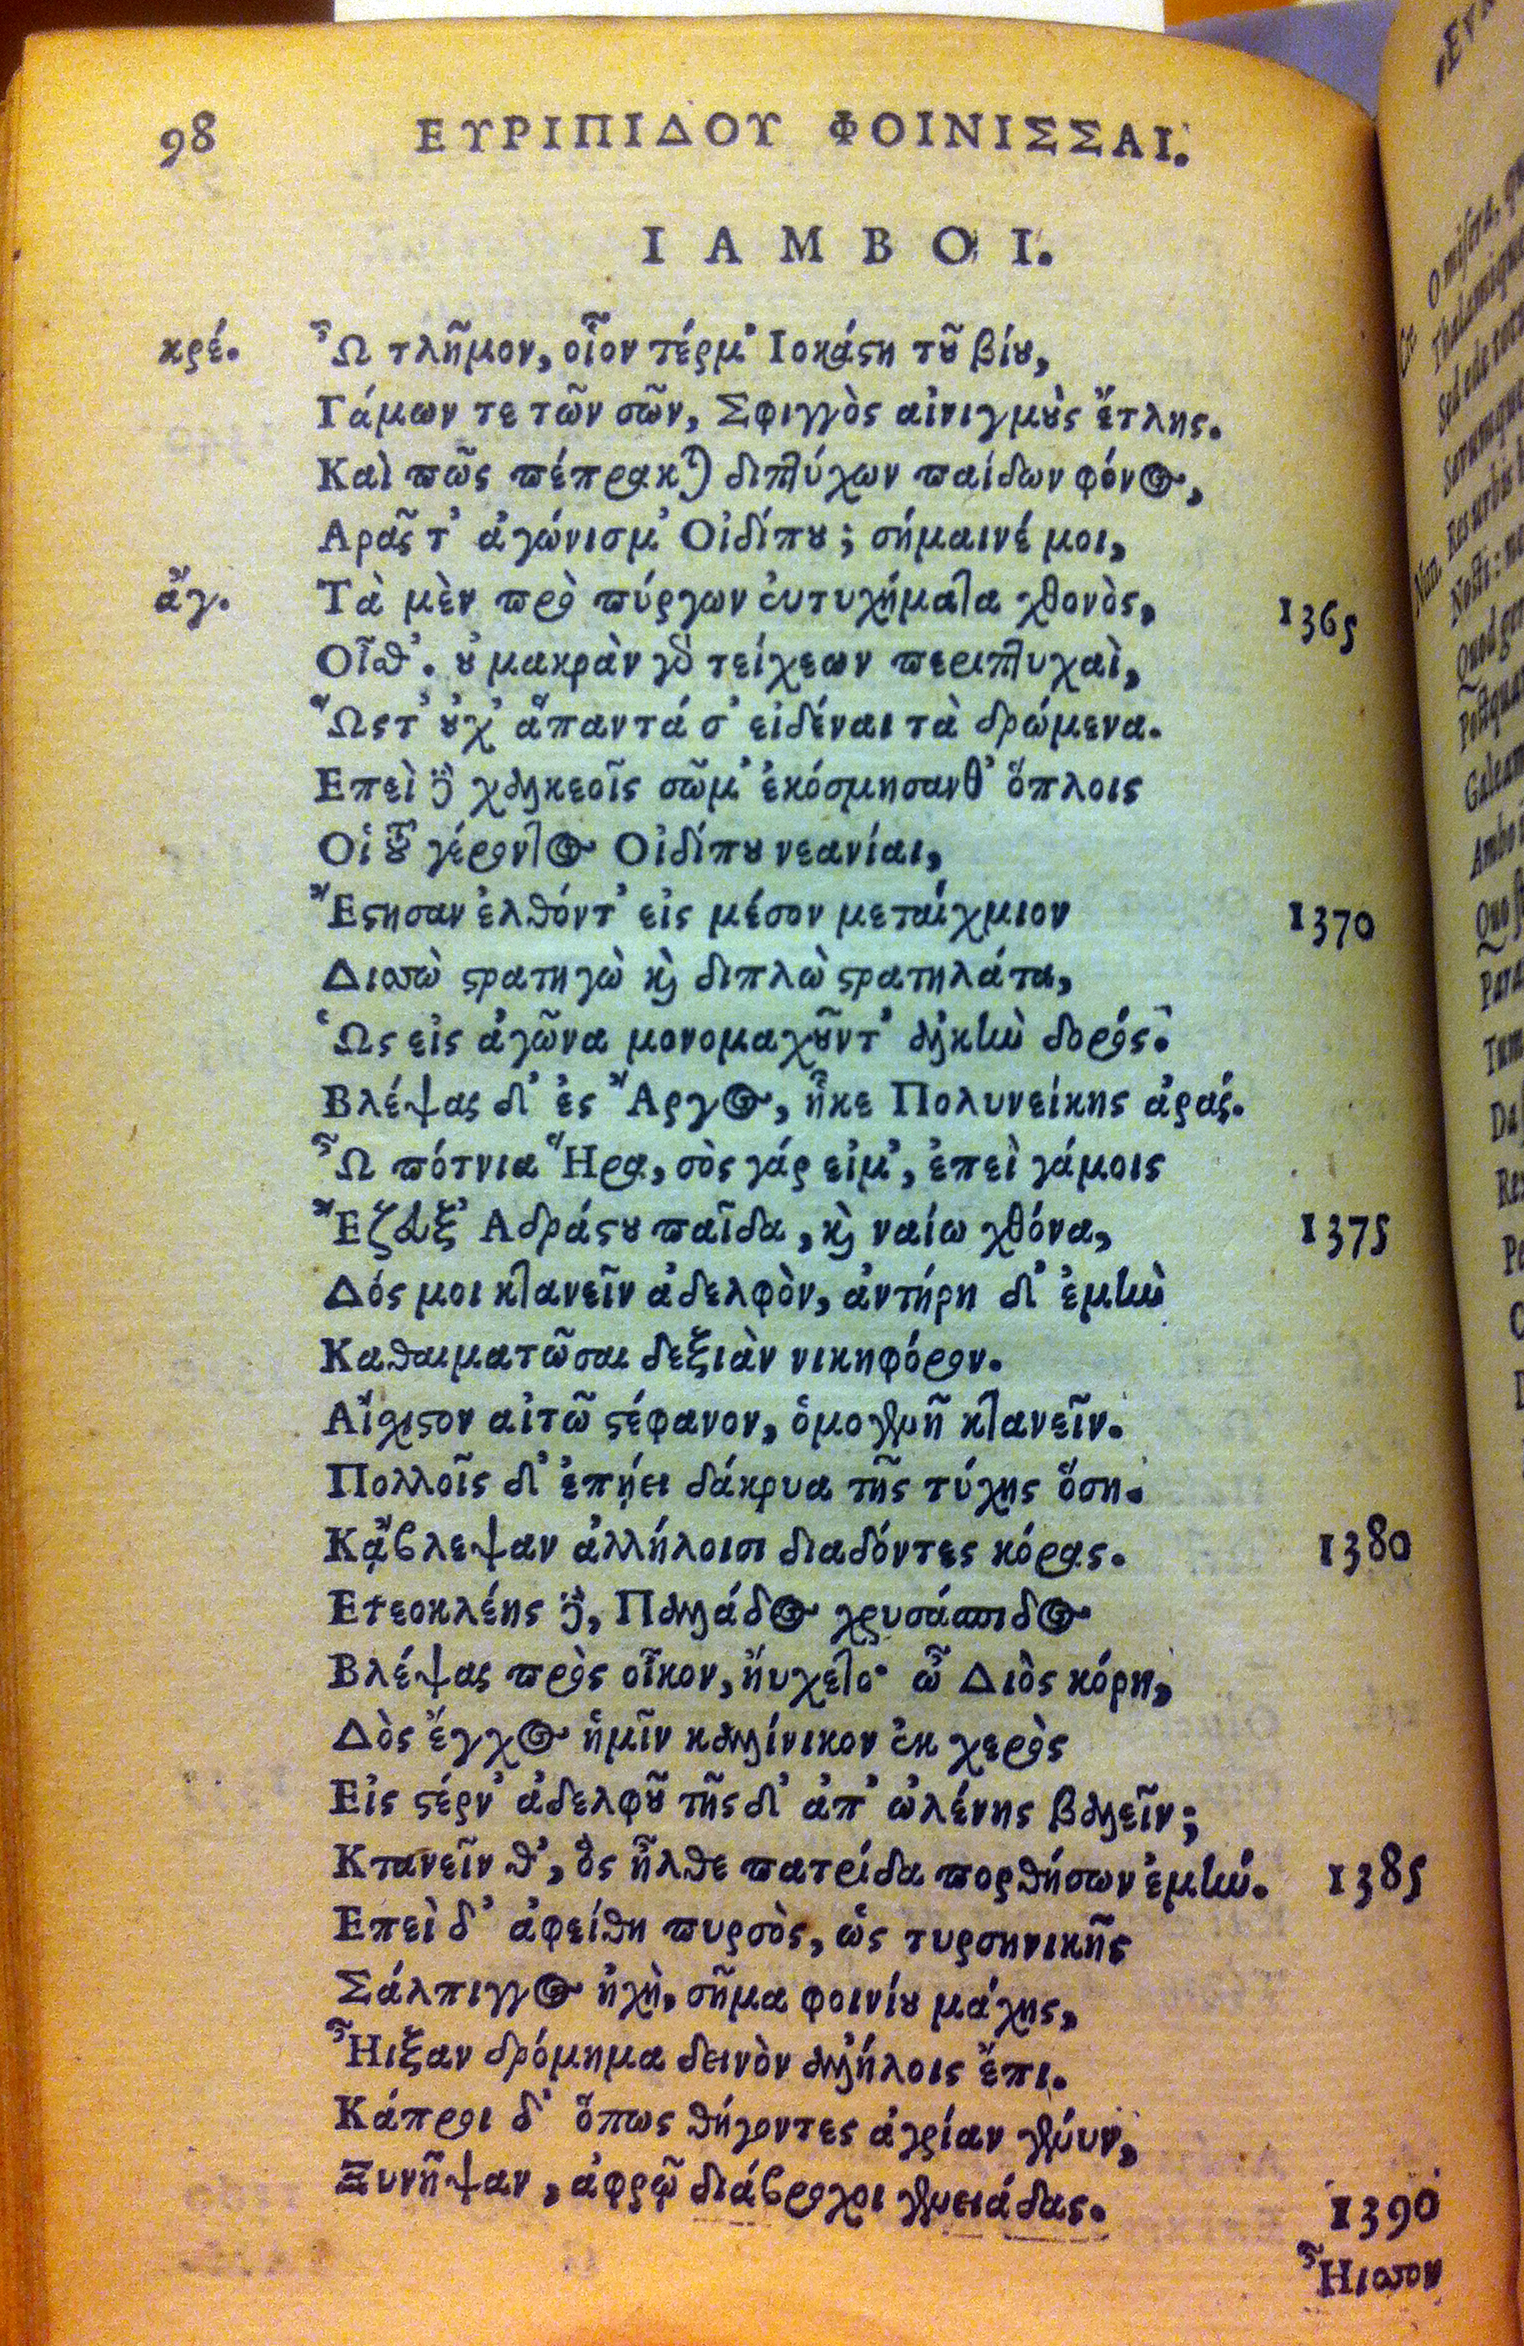 98 ΕΥΡΙΠΙΔΟΥ ΦΟΙΝΙΣΣΑΙ.
ΙΑΜΒΟΙ.
κρέ. Ὦ τλῆμον, οἷον τέρμ' Ιοκάϛη τȣ͂ βίȣ,
Γάμων τε τῶν σῶν, Σφιγγὸς αἰνιγμȣ̀ς ἔτλης.
Καὶ πῶς πέπρακται διπτύχων παίδων φόνος,
Αρᾶς τ' ἀγώνισμ' Οἰδίπȣ; σήμαινέ μοι,
ἄγ. Τὰ μὲν πρὸ πύργων εὐτυχήματα χθονὸς, 1365
Οἶσθ'. ȣ̓ μακρὰν γὸ τείχεων περιπτυχαὶ,
Ὥςτ' ȣ̓χ' ἅπαντά σ' εἰδέναι τὰ δρώμενα.
Επεὶ δὲ χαλκεοῖς σῶμ' ἐκόσμησανθ' ὅπλοις
Οἱ τȣ͂ γέροντος Οἰδίπȣ νεανίαι,
Ἔϛησαν ἐλθόντ' εἰς μέσον μεταίχμιον 1370
Δισσὼ ϛρατηγὼ καὶ διπλὼ ϛρατηλάτα,
Ὡς εἰς ἀγῶνα μονομαχȣ͂ντ' ἀλκὴν δορός.
Βλέψας δ' ἐς Ἄργος, ἧκε Πολυνείκης ἀράς.
Ὦ πότνια Ἥρα, σὸς γάρ εἰμ', ἐπεὶ γάμοις
Ἔζευξ' Αδράϛȣ παῖδα, καὶ ναίω χθόνα, 1375
Δός μοι κτανεῖν ἀδελφὸν, ἀντήρη δ' ἐμὴν
Καθαιματῶσαι δεξιὰν νικηφόρον.
Αἴχιϛον αἰτῶ ϛέφανον, ὁμογενῆ κτανεῖν.
Πολλοῖς δ' ἐπῄει δάκρυα τῆς τύχης ὅση.
Κᾄβλεψαν ἀλλήλοισι διαδόντες κόρας. 1380
Ετεοκλέης δὲ, Παλλάδος χρυσάσπιδος
Βλέψας πρὸς οἶκον, ηὔχετο· ὦ Διὸς κόρη,
Δὸς ἔγχος ἡμῖν καλλίνικον ἐκ χερὸς
Εἰς ϛέρν' ἀδελφȣ͂ τῆς δ' ἀπ' ὠλένης βαλεῖν;
Κτανεῖν θ', ὃς ἦλθε πατρίδα πορθήσων ἐμήν. 1385
Επεὶ δ' ἀφείθη πυρσὸς, ὡς τυρσηνικῆς
Σάλπιγγος ἠχὴ, σῆμα φοινίȣ μάχης,
Ἦιξαν δρόμημα δεινὸν ἀλλήλοις ἔπι.
Κάπροι δ' ὅπως θήγοντες ἀγρίαν γένυν,
Ξυνῆψαν, ἀφρῷ διάβροχοι γενειάδας. 1390
Ἦισσον